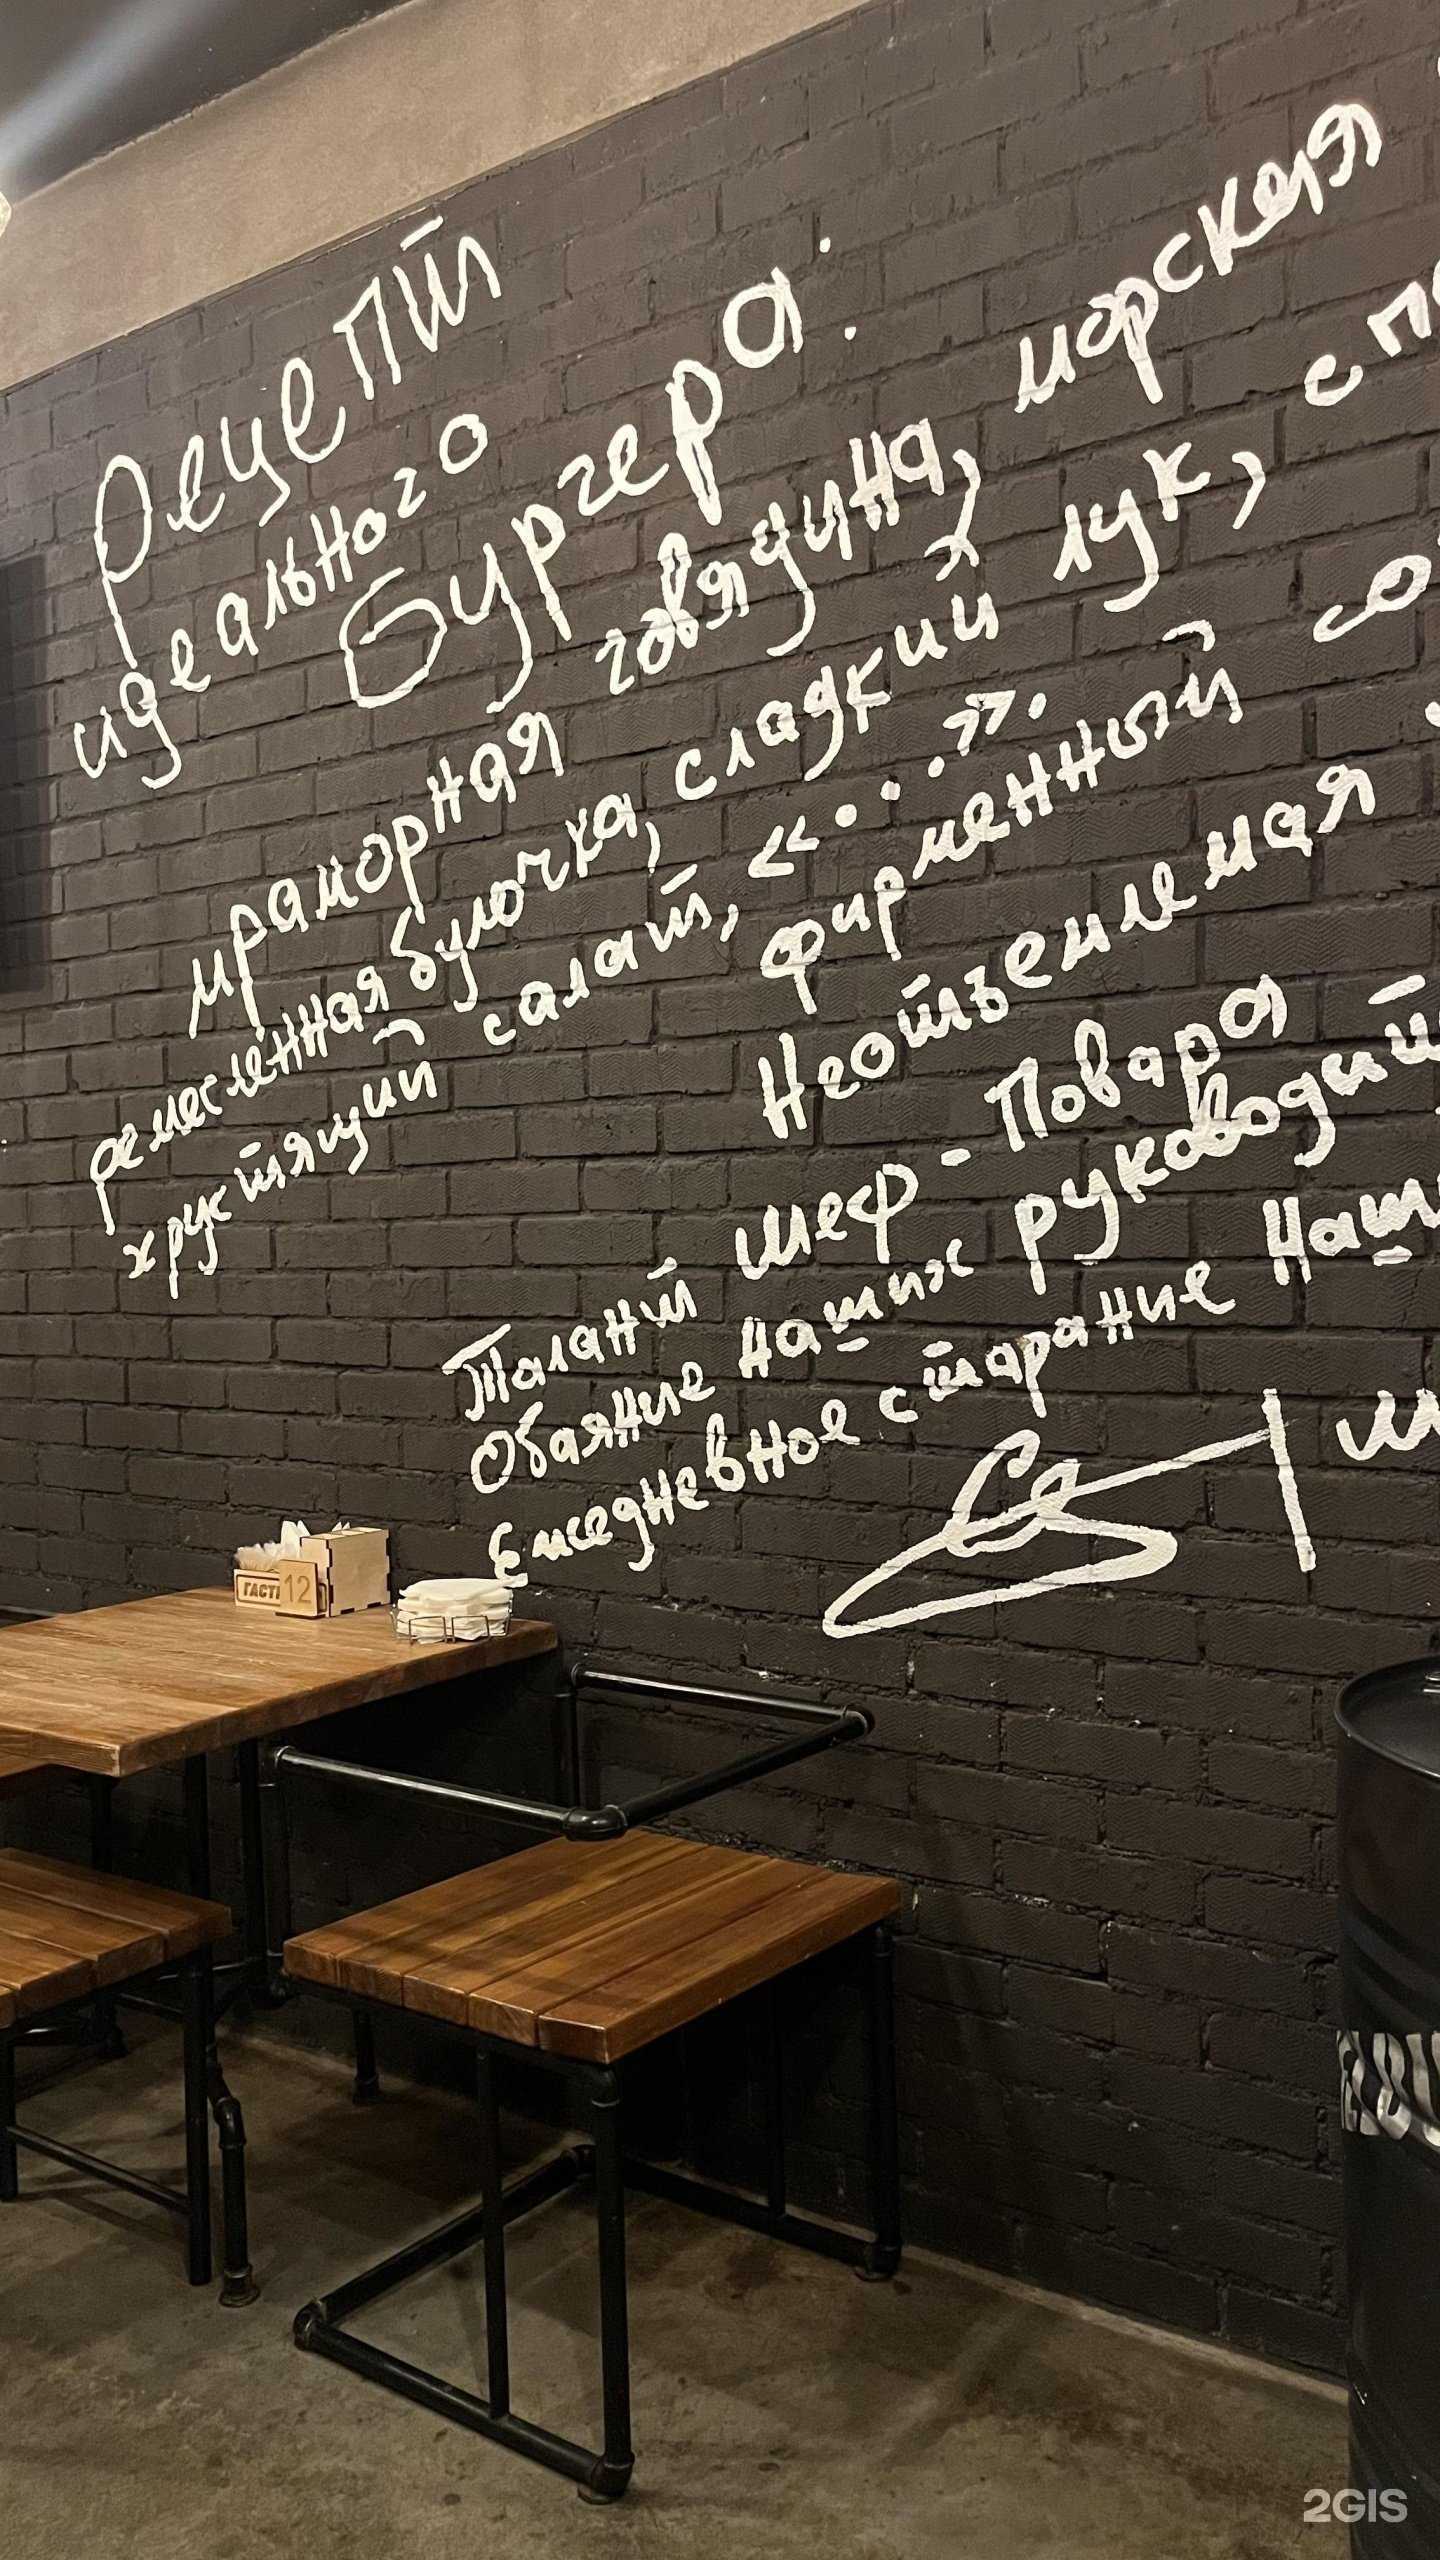 Рецепт
идеального
бургера:
мраморная говядина, морская
ремесленная булочка, сладкий лук,
хрустящий салат, «....».
фирменный
Неотъемлемая
Талант шеф-Повара
Обаяние наших руководит
Ежедневное старание наш
ГАСТ
12
2GIS